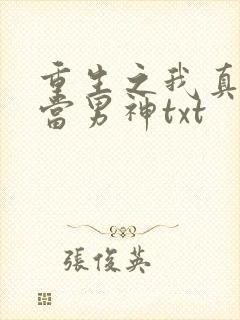 重生之我真
當男神txt
張俊英